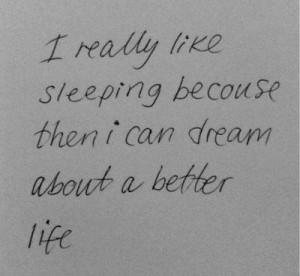 I really like
sleeping becouse
then i can dream
about a better
life